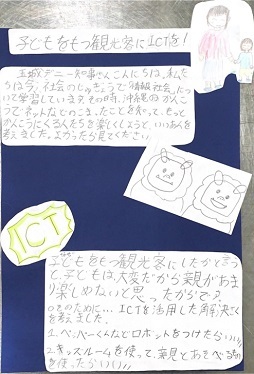 子どもをもつ観光客にICTを!
玉城デニー知事さんこんにちは。私た
ちは今、社会のじゅぎょうで「情報社会」に
ついて学習しています。その時、沖縄のかんこ
うでネットなどでのこまったことを知って、もっと
かんこうにくる人たちを楽しくしようと、いいあんを
考えました。よかったら見てください。
ICT
子どもをもつ観光客にしたかと言うと
、子どもは、大変だから親があま
り楽しめないと思ったからです。
そのために… ICTを活用した解決さくを
考えました。
1.ペッパーくんなどロボットをつけたらいい!!
2.キッズルームを使って、親とあそべるもの
を使ったらいい!!